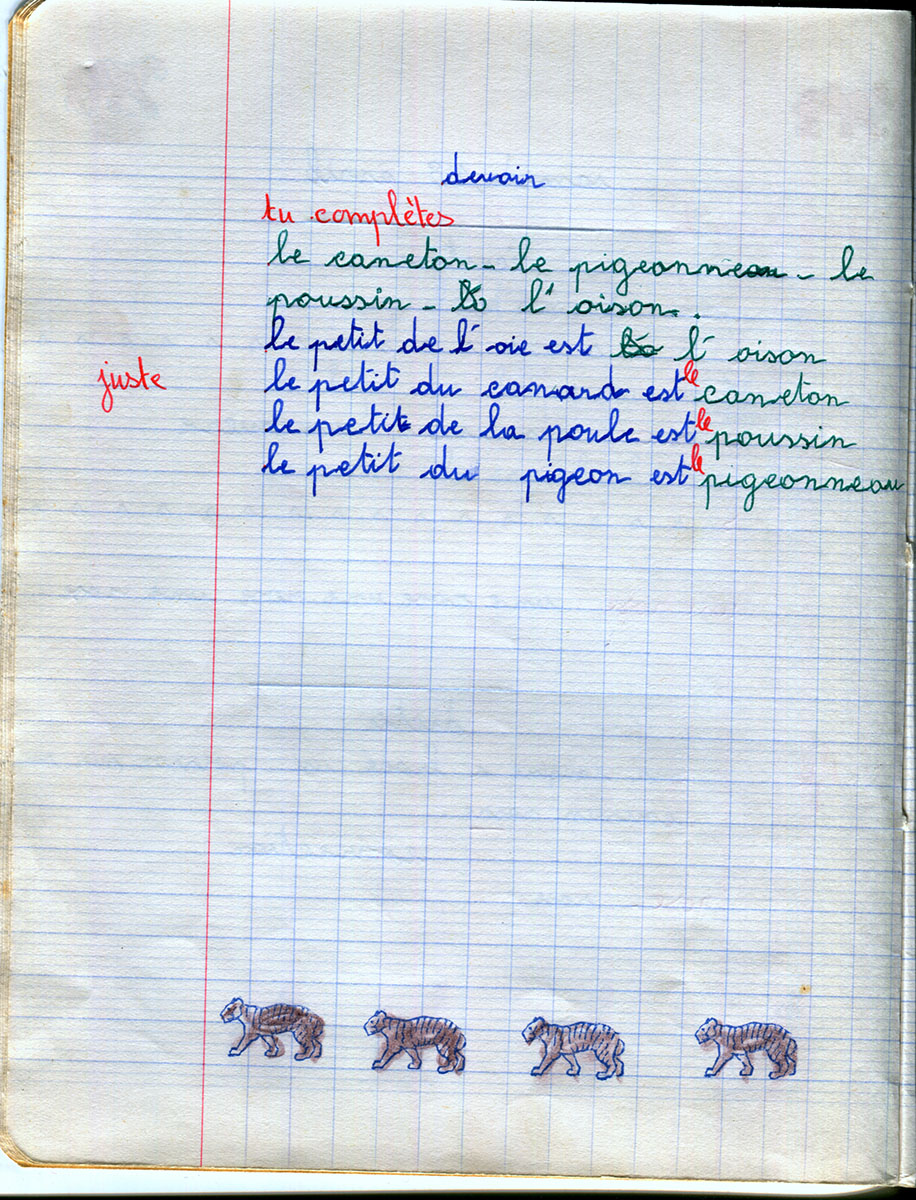 devoir
tu complètes
le caneton - le pigeonneau - le
poussin - l'oison.
le petit de l'oie est l'oison
juste
le petit du canard est le caneton
le petit de la poule est le poussin
le petit du pigeon est le pigeonneau